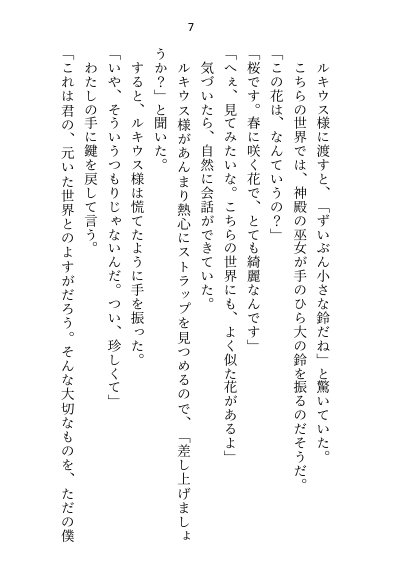 7
ルキウス様に渡すと、「ずいぶん小さな鈴だね」と驚いていた。
こちらの世界では、神殿の巫女が手のひら大の鈴を振るのだそうだ。
「この花は、なんていうの？」
「桜です。春に咲く花で、とても綺麗なんです」
「へぇ、見てみたいな。こちらの世界にも、よく似た花があるよ」
気づいたら、自然に会話ができていた。
ルキウス様があんまり熱心にストラップを見つめるので、「差し上げましょ
うか？」と聞いた。
すると、ルキウス様は慌てたように手を振った。
「いや、そういうつもりじゃないんだ。つい、珍しくて」
わたしの手に鍵を戻して言う。
「これは君の、元いた世界とのよすがだろう。そんな大切なものを、ただの僕